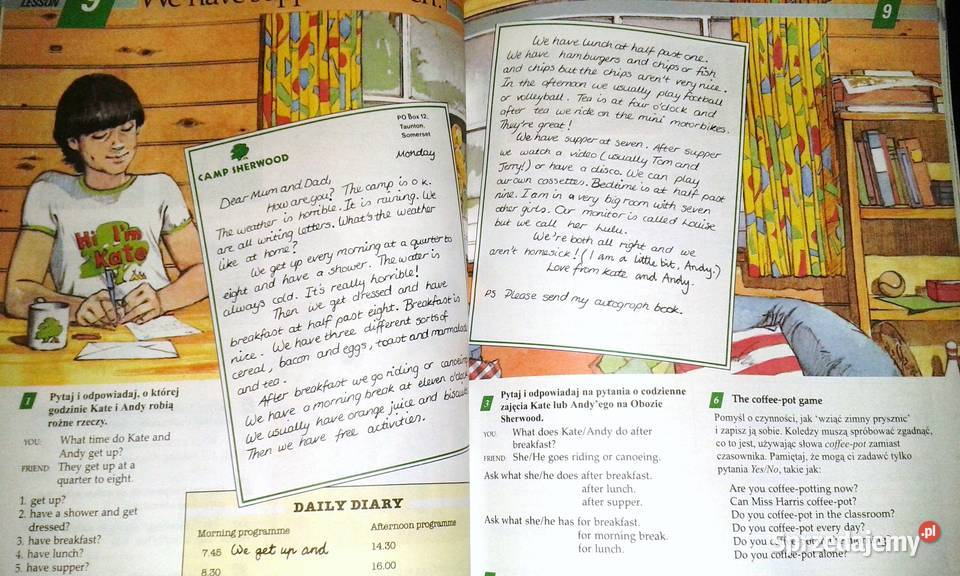 LESSON
9
We have supper
9
Hi I'm
Kate
CAMP SHERWOOD
PO Box 12,
Taunton,
Somerset
Monday
Dear Mum and Dad,
How are you? The camp is o.k.
The weather is horrible. It is raining. We
are all writing letters. What's the weather
like at home?
We get up every morning at a quarter to
eight and have a shower. The water is
always cold. It's really horrible!
Then we get dressed and have
breakfast at half past eight. Breakfast is
nice. We have three different sorts of
cereal, bacon and eggs, toast and marmalade
and tea.
After breakfast we go riding or canoeing.
We have a morning break at eleven o'clock.
We usually have orange juice and biscuits.
Then we have free activities.
We have lunch at half past one.
We have hamburgers and chips or fish
and chips but the chips aren't very nice.
In the afternoon we usually play football
or volleyball. Tea is at four o'clock and
after tea we ride on the mini motorbikes.
They're great!
We have supper at seven. After supper
we watch a video (usually Tom and
Jerry!) or have a disco. We can play
our own cassettes. Bedtime is at half past
nine. I am in a very big room with seven
other girls. Our monitor is called Louise
but we call her Lulu.
We're both all right and we
aren't homesick! (I am a little bit, Andy.)
Love from Kate and Andy.
PS Please send my autograph book.
1 Pytaj i odpowiadaj, o której
godzinie Kate i Andy robią
różne rzeczy.
YOU: What time do Kate and
Andy get up?
FRIEND: They get up at a
quarter to eight.
1. get up?
2. have a shower and get
dressed?
3. have breakfast?
4. have lunch?
5. have supper?
DAILY DIARY
Morning programme
Afternoon programme
7.45 We get up and
14.30
8.30
16.00
3 Pytaj i odpowiadaj na pytania o codzienne
zajęcia Kate lub Andy'ego na Obozie
Sherwood.
YOU: What does Kate/Andy do after
breakfast?
FRIEND: She/He goes riding or canoeing.
Ask what she/he does after breakfast.
after lunch.
after supper.
Ask what she/he has for breakfast.
for morning break.
for lunch.
6 The coffee-pot game
Pomyśl o czynności, jak 'wziąć zimny prysznic'
i zapisz ją sobie. Koledzy muszą spróbować zgadnąć,
co to jest, używając słowa coffee-pot zamiast
czasownika. Pamiętaj, że mogą ci zadawać tylko
pytania Yes/No, takie jak:
Are you coffee-potting now?
Can Miss Harris coffee-pot?
Do you coffee-pot in the classroom?
Do you coffee-pot every day?
Do you
Do you coffee-pot alone?
sprzedajemy.pl